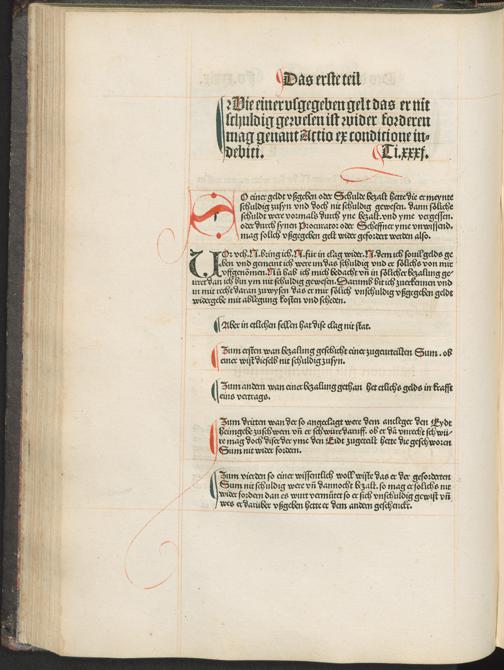 Das erste teil
Wie einer vsgegeben gelt das er nit
schuldig gewesen ist wider forderen
mag genant Actio ex condicione in-
debiti. Ti.xxxj.
SO einer geldt vßgeben oder Schulde bezalt hette die er meynte
schuldig zusyn vnd doch nit schuldig gewesen. dann söliche
schuldt were vormals durch yne bezalt. vnd yme vergessen.
oder durch synen Procurator oder Scheffner yme vnwissend.
mag solich vßgegeben gelt wider gefordert werden also.
VOr vch. N. bring ich. N. für in clag wider. N. dem ich souil gelds ge
ben vnd gemeint ich were im das schuldig vnd er sölichs von mir
vffgenomen. Nũ hab ich mich bedacht vñ in sölicher bezalung ge-
irret dan ich bin ym nit schuldig gewesen. Darumb bit ich zuerkennen vnd
in mit recht daran zuwysen das er mir sölich vnschuldig vßgegeben geldt
widergebe mit ablegung kosten vnd scheden.
Aber in etlichen fellen hat dise clag nit stat.
Zum ersten wan bezalung geschicht einer zugeurteilten Sum. ob
einer wißt dieselb nit schuldig zusyn.
Zum andern wan einer bezalung gethan het etlichs gelds in krafft
eins vertrags.
Zum dritten wan der so angeclagt were dem ancleger den Eydt
heimgebt zuschwern vñ er schwüre daruff. ob er dã vnrecht schwü-
re mag doch diser der yme den Eidt zugeteilt hette die geschworen
Sum nit wider fordern.
Zum vierden so einer wissentlich woll wißte das er der geforderten
Sum nit schuldig were vñ dannocht bezalt. so mag er solichs nit
wider fordern dan es wurt vermütet so er sich vnschuldig gewißt vñ
wes er darüber vßgeben hette er dem andern geschenckt.